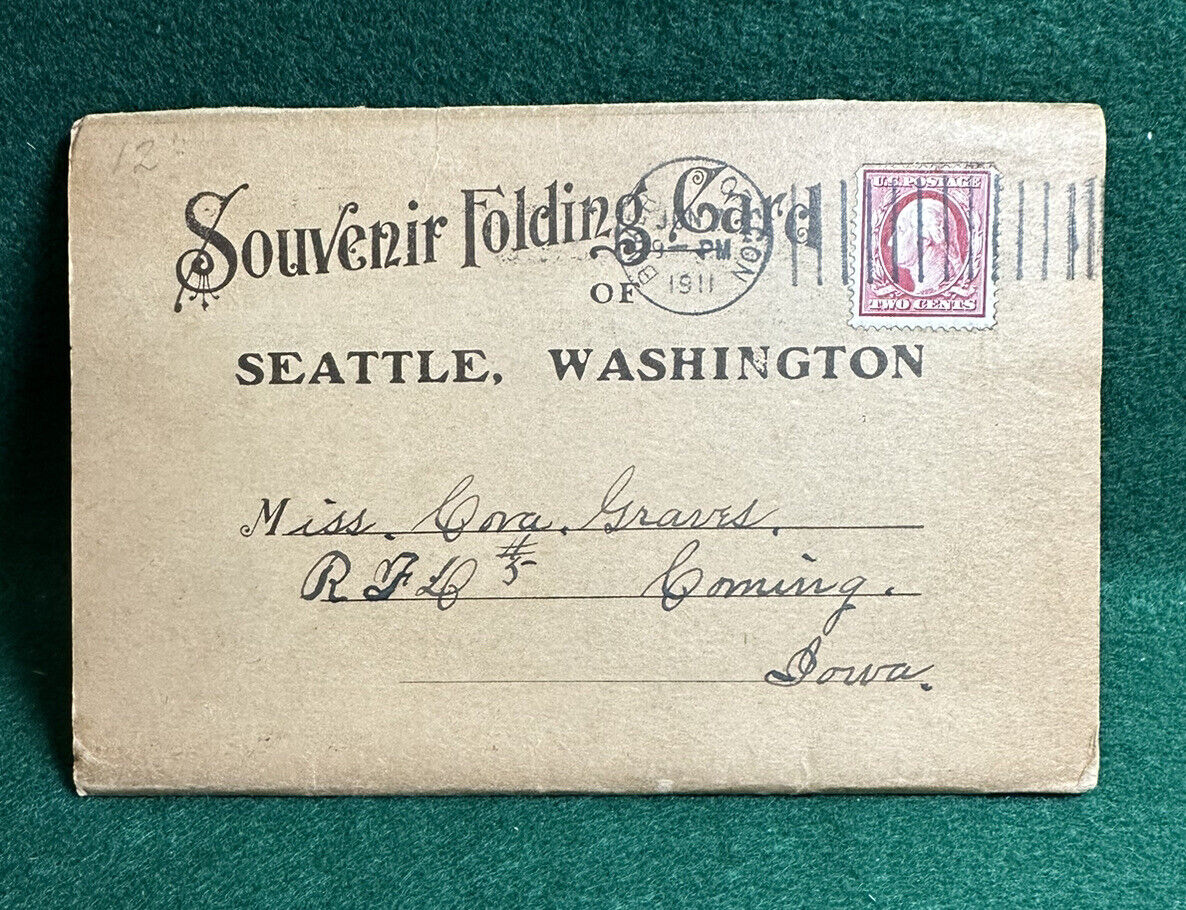 12
Souvenir Folding Card
OF
SEATTLE, WASHINGTON
JAN
9 PM
1911
OREGON
U.S. POSTAGE
TWO CENTS
Miss. Cora. Graves.
R F D #5 Corning.
Iowa.